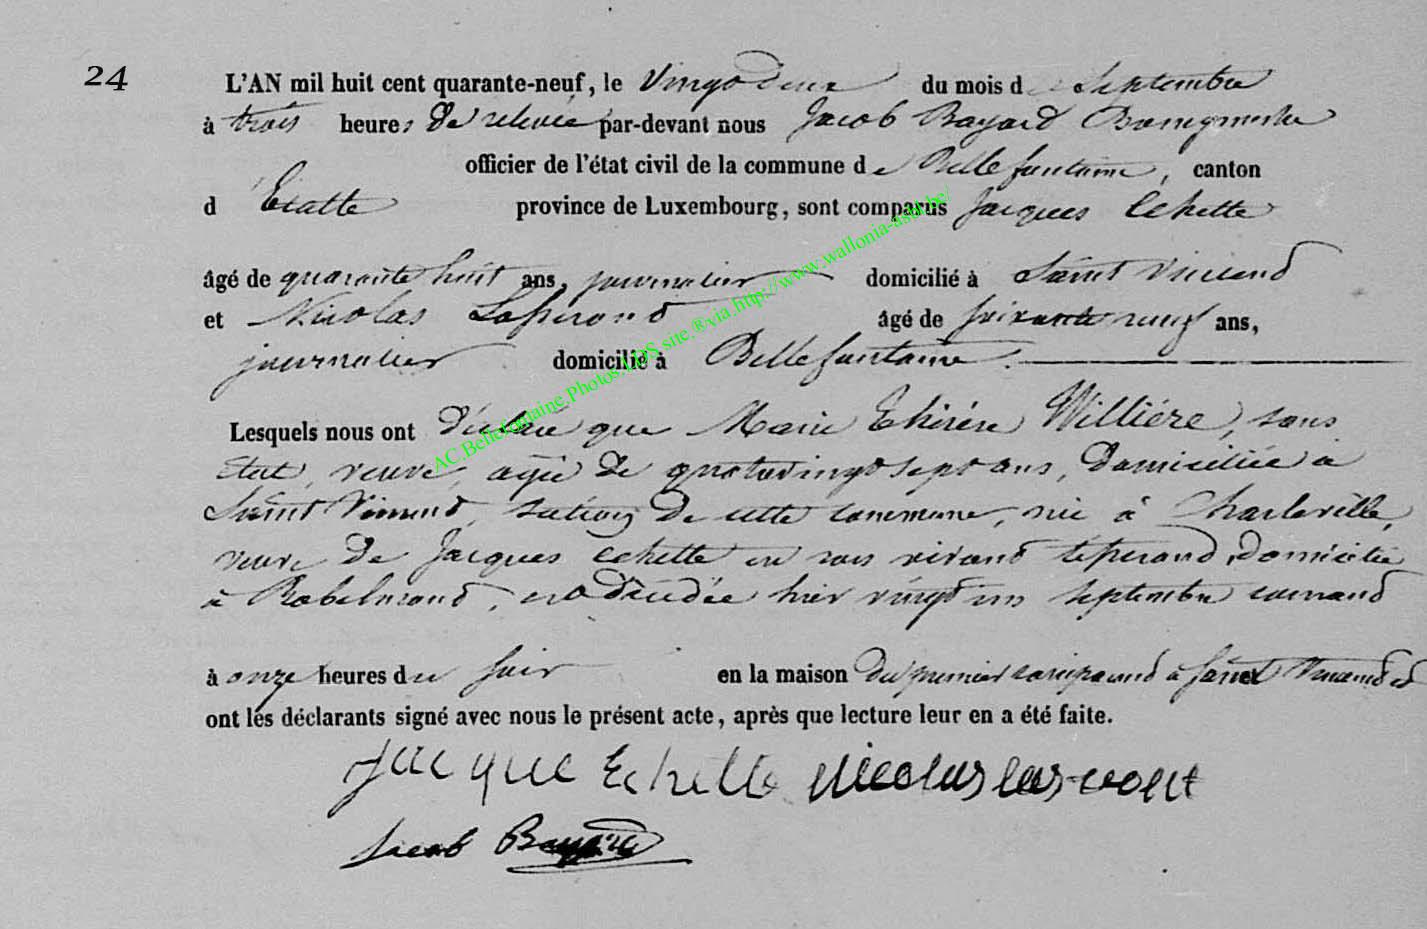 24
L'AN mil huit cent quarante-neuf, le vingt deux du mois de Septembre
à trois heures de relevée par-devant nous Jacob Bayard Bourgmestre
officier de l'état civil de la commune de Bellefontaine, canton
d'Etalle province de Luxembourg, sont comparus Jacques Echette
âgé de quarante huit ans, journalier domicilié à Saint Vincent
et Nicolas Lasperont âgé de soixante neuf ans,
journalier domicilié à Bellefontaine.
Lesquels nous ont déclaré que Marie Thérèse Willière, sans
état, veuve, agée de quatrevingt sept ans, domiciliée à
Saint Vincent, section de cette commune, née à Charleville,
veuve de Jacques Echette en son vivant tisserand, domicilié
à Robelmont, est décédée hier vingt un septembre courant
à onze heures du soir en la maison du premier comparant à Saint Vincent et
ont les déclarants signé avec nous le présent acte, après que lecture leur en a été faite.
Jacque Echette Nicolas
Jacob Bayard
AC.Bellefontaine.Photos.LDS site.®via.http://www.wallonia-asbl.be/